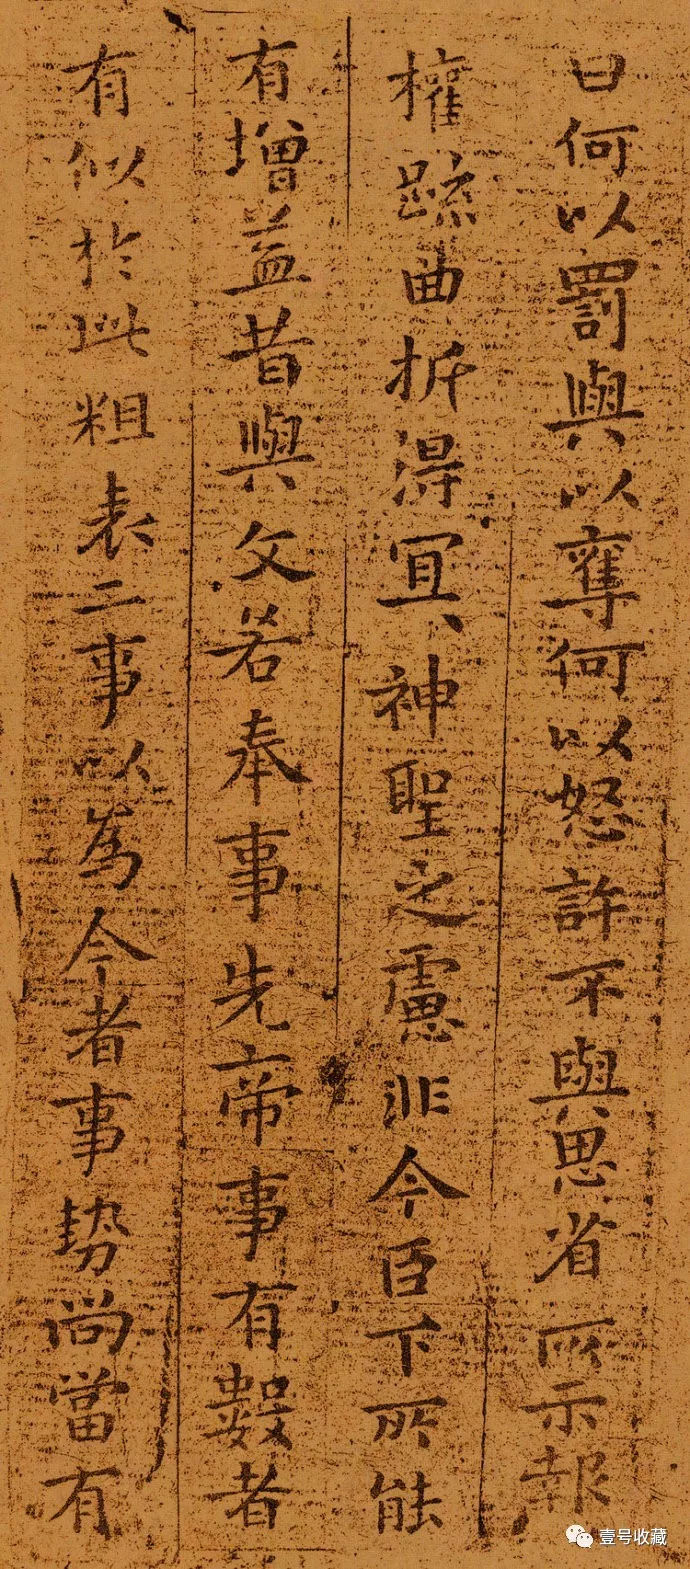 曰何以罰與以奪何以怒許不與思省所示報
權疏曲折得冝神聖之慮非今臣下所能
有增益昔與文若奉事先帝事有數者
有似於此粗表二事以為今者事勢尚當有
壹号收藏